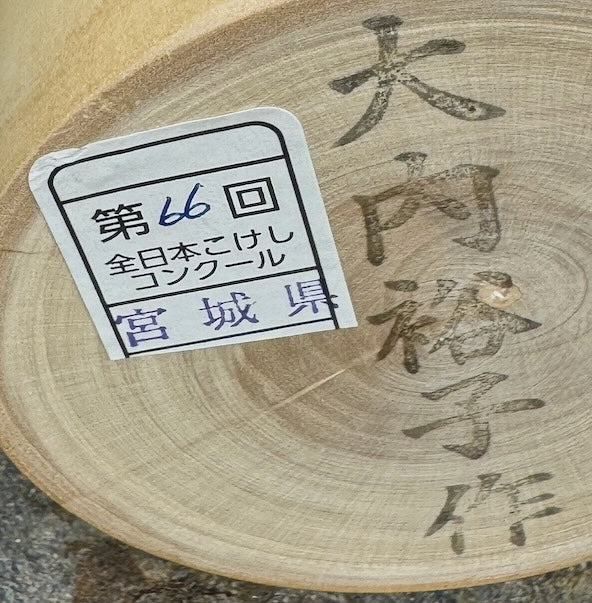 第66回
全日本こけし
コンクール
宮城県
大内裕子作